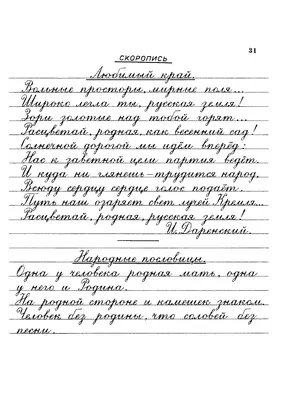 31
СКОРОПИСЬ
Любимый край.
Вольные просторы, мирные поля...
Широко легла ты, русская земля!
Зори золотые над тобой горят...
Расцветай, родная, как весенний сад!
Солнечной дорогой мы идём вперёд:
Нас к заветной цели партия ведёт.
И куда ни глянешь – трудится народ.
Всюду сердцу сердце голос подаёт.
Путь наш озаряет свет лучей Кремля...
Расцветай, родная, русская земля!
И. Даренский.
Народные пословицы.
Одна у человека родная мать, одна
у него и Родина.
На родной стороне и камешек знаком.
Человек без родины, что соловей без
песни.